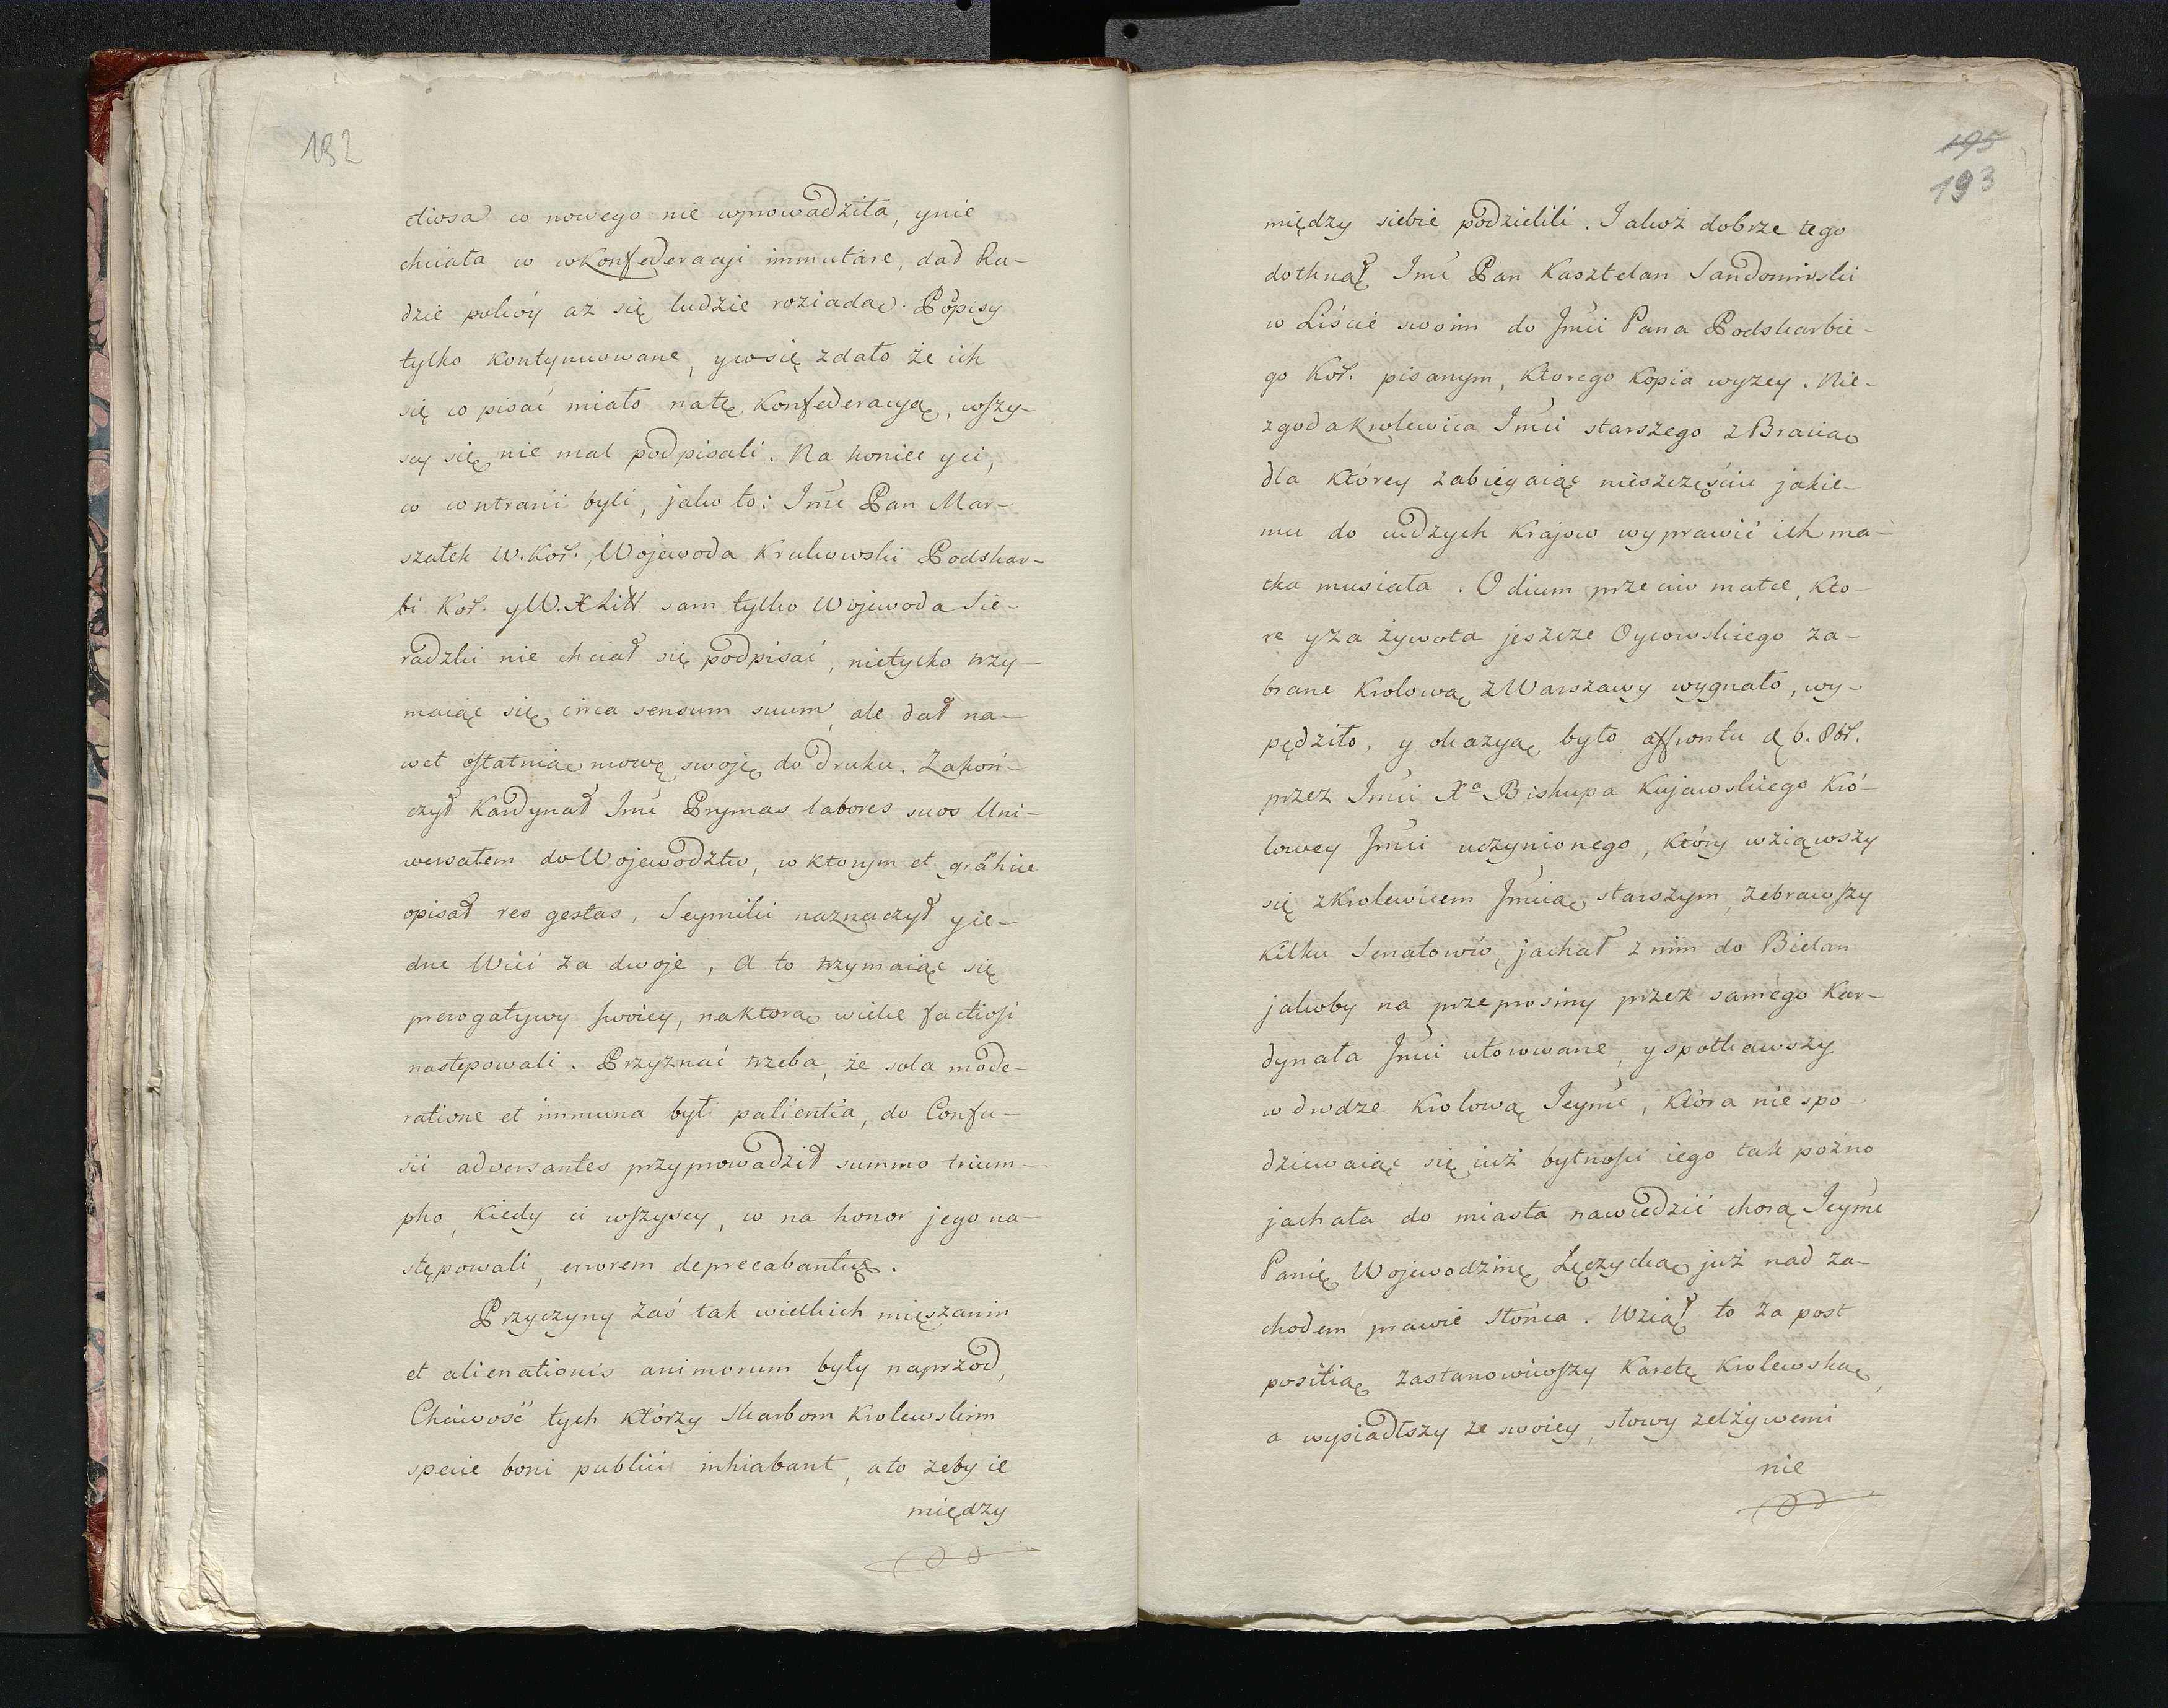 192
ctiosa co nowego nie wprowadziła, y nie
chciała co w Konfederacyi immutare, dad Ra-
dzie pokóy aż się ludzie roziadą. Popisy
tylko kontynuowane, y co się zdało że ich
się co pisać miało na tę Konfederacyą, wszy-
scy się nie mal podpisali. Na koniec y ci,
co contrarii byli, jako to: Jmć Pan Mar-
szałek W. Kor. Wojewoda Krakowski Podskar-
bi Kor. y W. X Litt sam tylko Wojewoda Sie-
radzki nie chciał się podpisać, nietylko trzy-
maiąc się circa sensum suum, ale dał na-
wet ostatnią mowę swoję do druku. Zakoń-
czył Kardynał Jmć Prymas labores suos Uni-
wersałem do Wojewodztw, w ktorym et graphice
opisał res gestas, Seymiki naznaczył y ie-
dne Wici za dwoje, a to trzymaiąc się
prerogatywy swoiey, na ktorą wielce factiosi
nastepowali. Przyznać trzeba, że sola mode-
ratione et immuna był patientia, do Confu-
sii adversantes przyprowadził summo trium-
pho, kiedy ci wszyscy, co na honor jego na-
stępowali, errorem deprecabantur.
Przyczyny zaś tak wielkich mięszanin
et alienationis animorum były naprzod,
Chciwość tych którzy Skarbom Krolewskim
specie boni publici inhiabant, a to zeby ie
między
195
193
między siebie podzielili. Jakoż dobrze tego
dotknął Jmć Pan Kasztelan Sandomirski
w Liście swoim do Jmci Pana Podskarbie-
go Kor. pisanym, którego kopia wyzey. Nie-
zgoda Krolewica Jmci starszego z Bracią
dla którey zabiegaiąc nieszczęściu jakie-
mu do cudzych krajow wyprawić ich ma-
tka musiała. Odium przeciw matce, kto-
re y za żywota jeszcze Oycowskiego za-
brane Krolową z Warszawy wygnało, wy-
pędziło, y okazyą było affrontu d. 6. 8br.
przez Jmci Xa Biskupa Kujawskiego Kró-
lowey Jmci uczynionego, który wziąwszy
się z Krolewicem Jmcią starszym, zebrawszy
kilku Senatorow, jachał z nim do Bielan
jakoby na przeprosiny przez samego Kar-
dynała Jmci utorowane, y spotkawszy
w drodze Krolową Jeymć, która nie spo-
dziewaiąc się iuż bytności iego tak pozno
jachała do miasta nawiedzić chorą Jeymć
Panię Wojewodzinę Łęczycką już nad za-
chodem prawie słońca. Wziął to za post
positią zastanowiwszy karetę Krolewską,
a wysiadłszy ze swoiey, słowy zelżywemi
nie